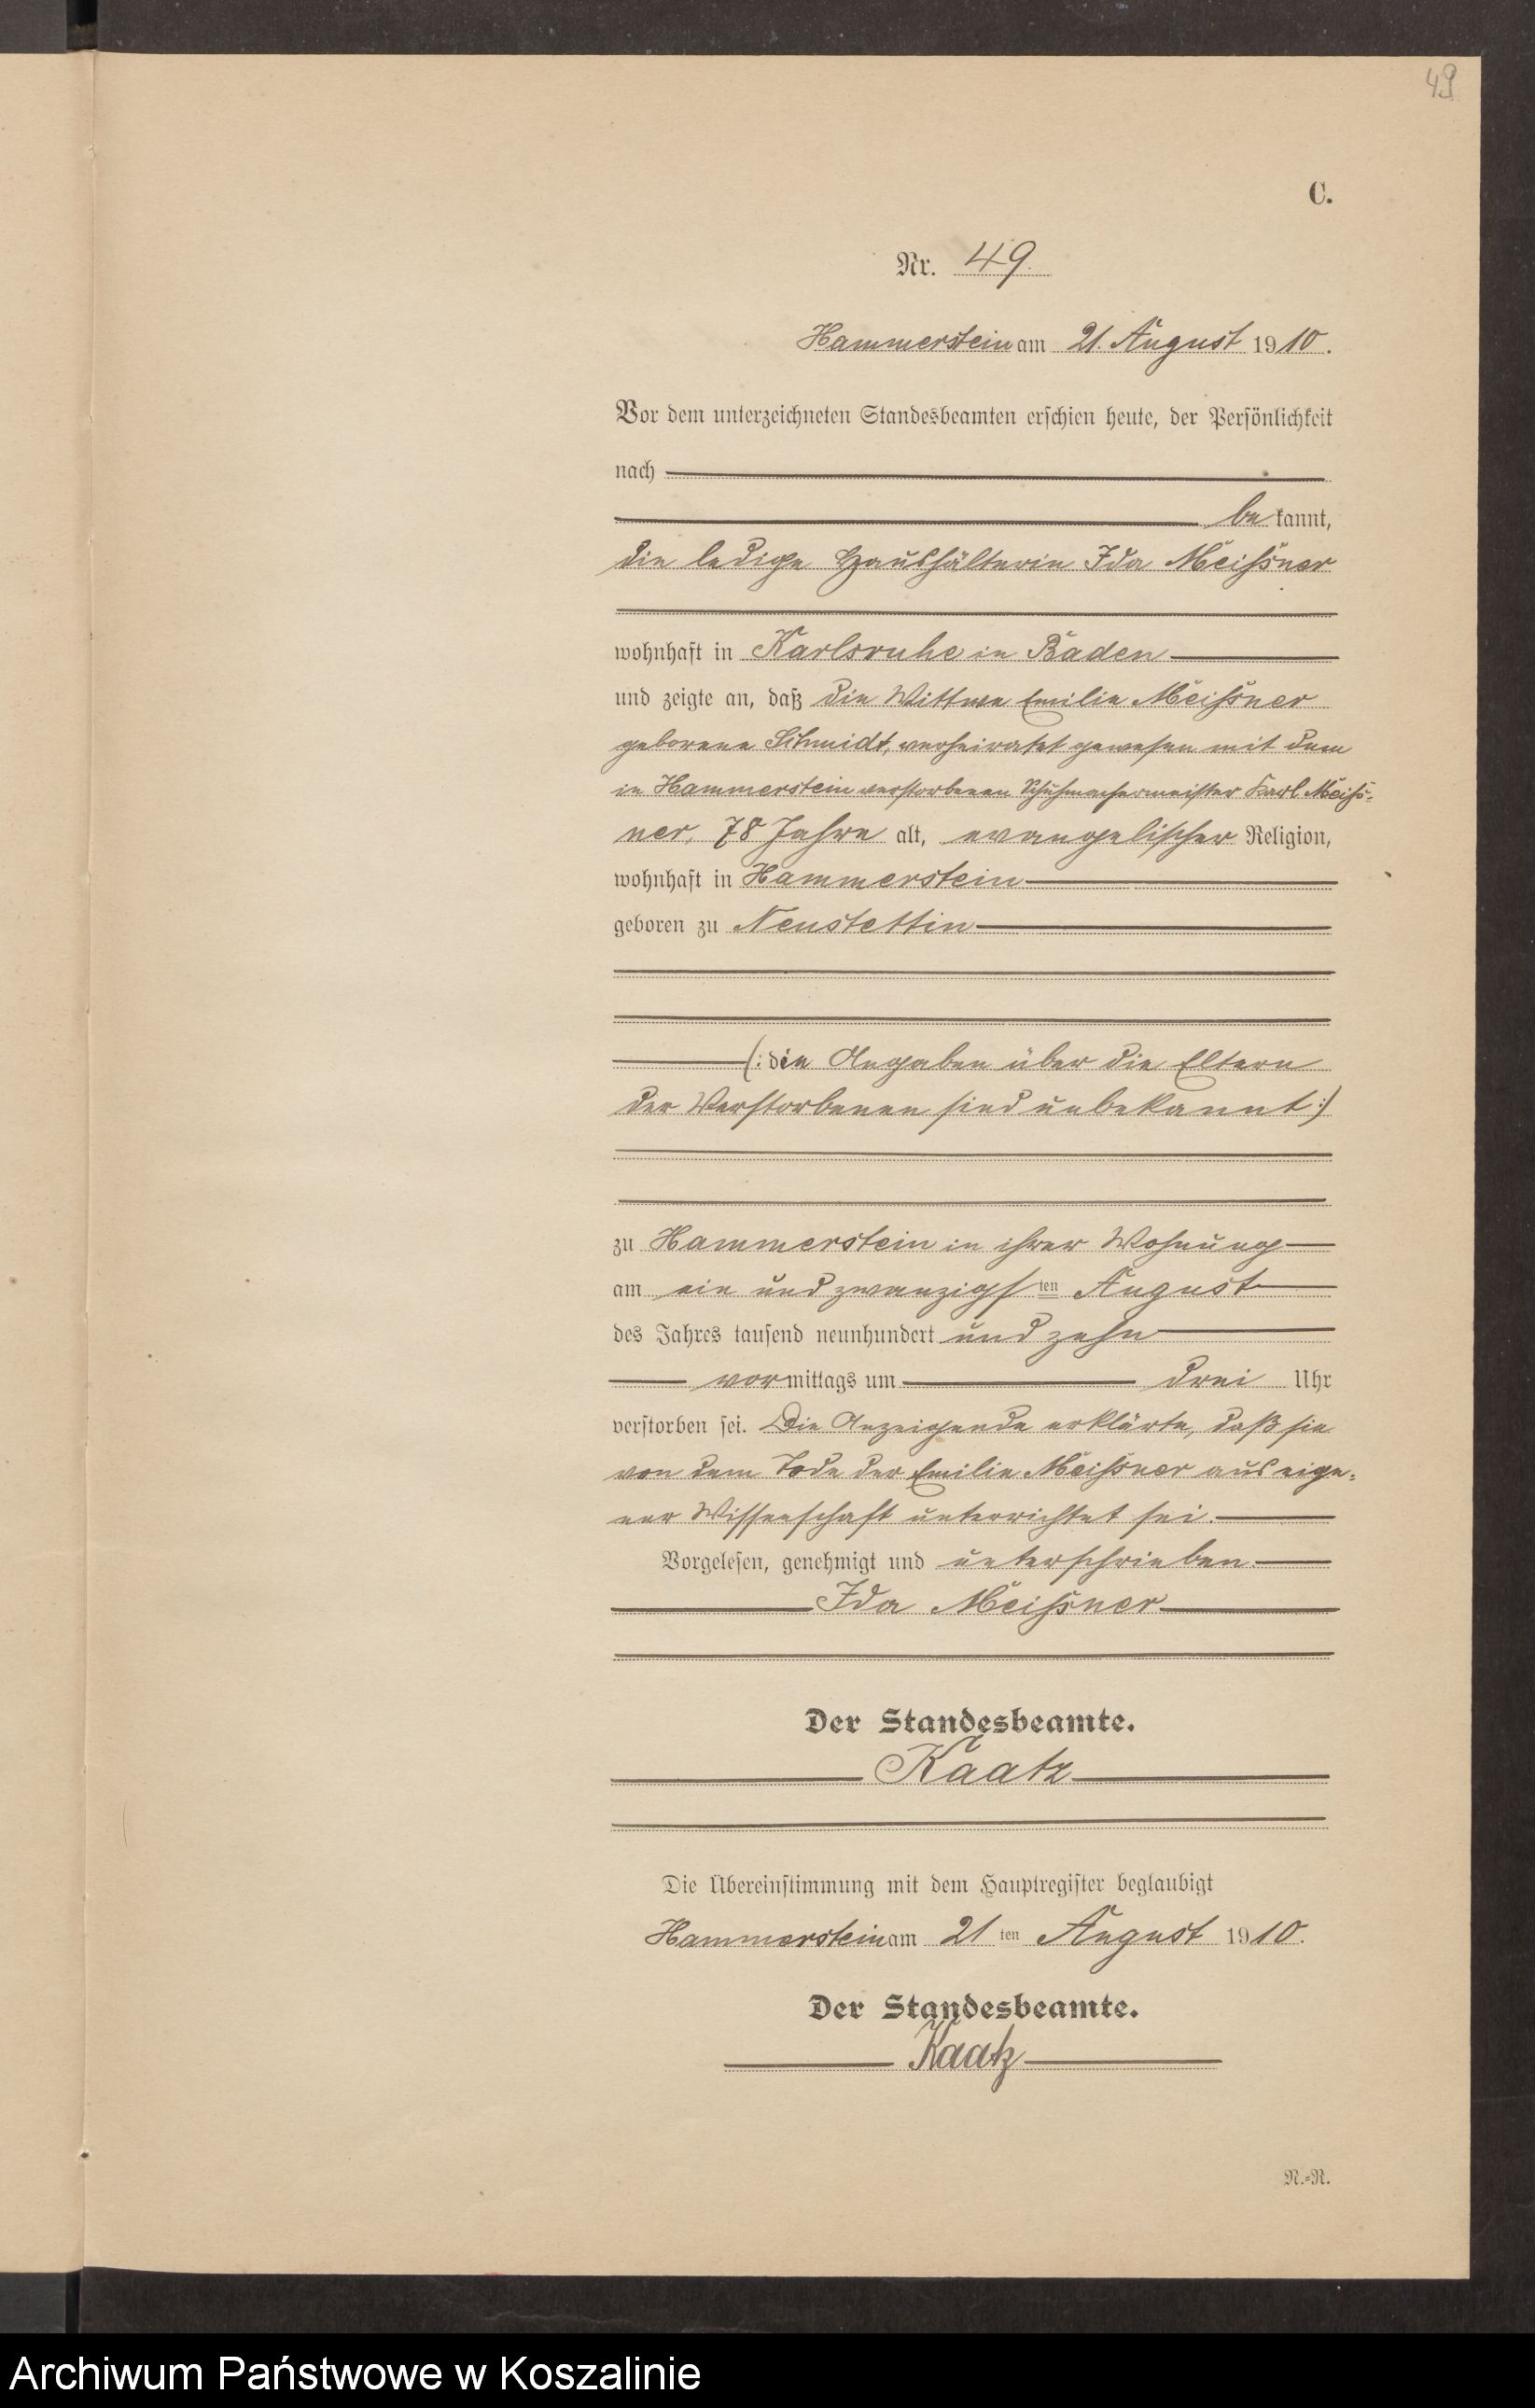 49
C.
Nr. 49.
Hammerstein am 21. August 1910.
Vor dem unterzeichneten Standesbeamten erschien heute, der Persönlichkeit
nach
be kannt,
die ledige Haushälterin Ida Meißner
wohnhaft in Karlsruhe in Baden
und zeigte an, daß die Wittwe Emilie Meißner
geborene Schmidt, verheiratet gewesen mit dem
in Hammerstein verstorbenen Schuhmachermeister Karl Meiß-
ner, 78 Jahre alt, evangelischer Religion,
wohnhaft in Hammerstein
geboren zu Neustettin
(: die Angaben über die Eltern
der Verstorbenen sind unbekannt :)
zu Hammerstein in ihrer Wohnung
am ein und zwanzigsten August
des Jahres tausend neunhundert und zehn
vormittags um drei Uhr
verstorben sei. Die Anzeigende erklärte, daß sie
von dem Tode der Emilie Meißner aus eige-
ner Wissenschaft unterrichtet sei.
Vorgelesen, genehmigt und unterschrieben.
Ida Meißner
Der Standesbeamte.
Kaatz
Die Übereinstimmung mit dem Hauptregister beglaubigt
Hammerstein am 21 ten August 1910.
Der Standesbeamte.
Kaatz
N.=R.
Archiwum Państwowe w Koszalinie